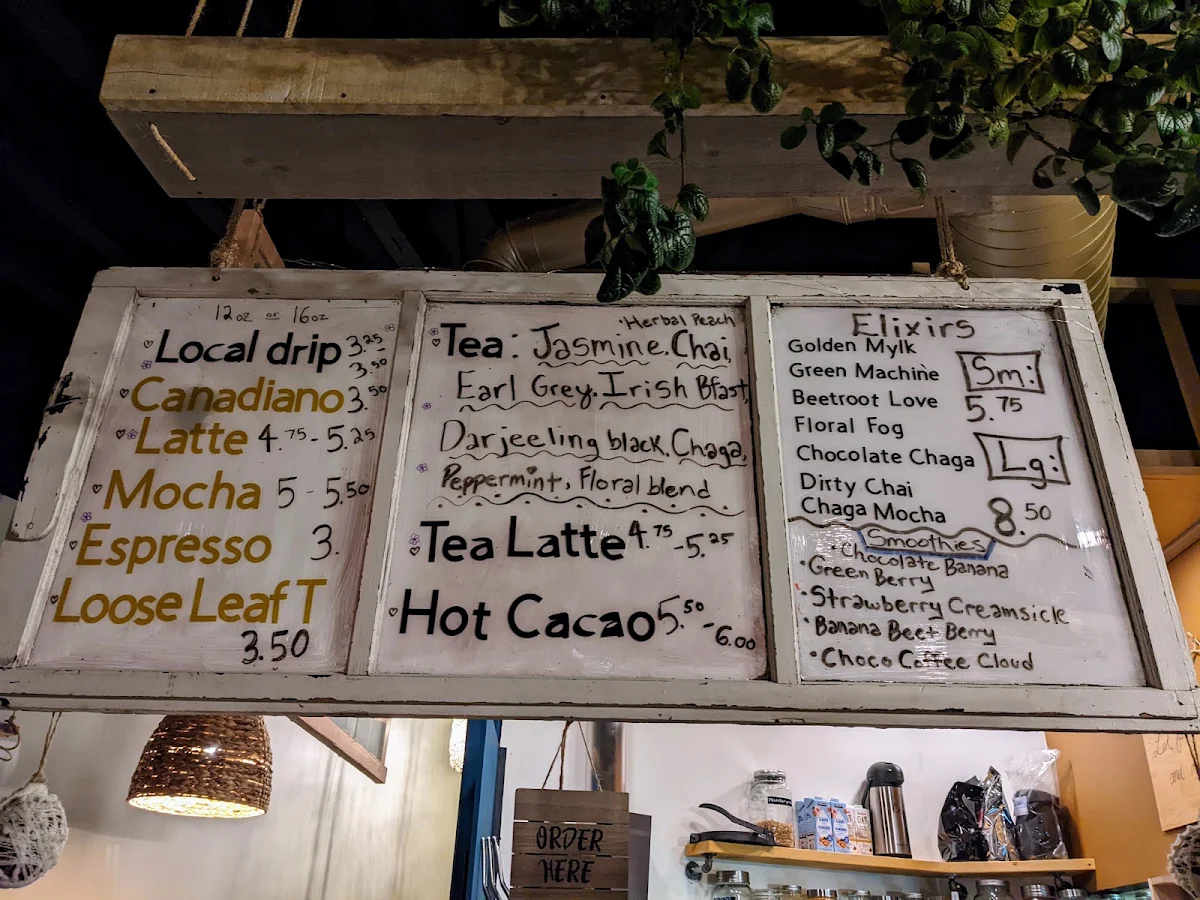 12oz or 16oz
Local drip 3.25 - 3.50
Canadiano 3.50
Latte 4.75 - 5.25
Mocha 5 - 5.50
Espresso 3.
Loose Leaf T
3.50
• Herbal Peach
Tea: Jasmine, Chai,
Earl Grey, Irish Bfast,
Darjeeling black, Chaga,
Peppermint, Floral blend
Tea Latte 4.75 - 5.25
Hot Cacao 5.50 - 6.00
Elixirs
Golden Mylk
Green Machine
Sm:
Beetroot Love
5.75
Floral Fog
Chocolate Chaga
Lg:
Dirty Chai
Chaga Mocha
8.50
Smoothies
• Chocolate Banana
• Green Berry
• Strawberry Creamsicle
• Banana Beet Berry
• Choco Coffee Cloud
ORDER
HERE